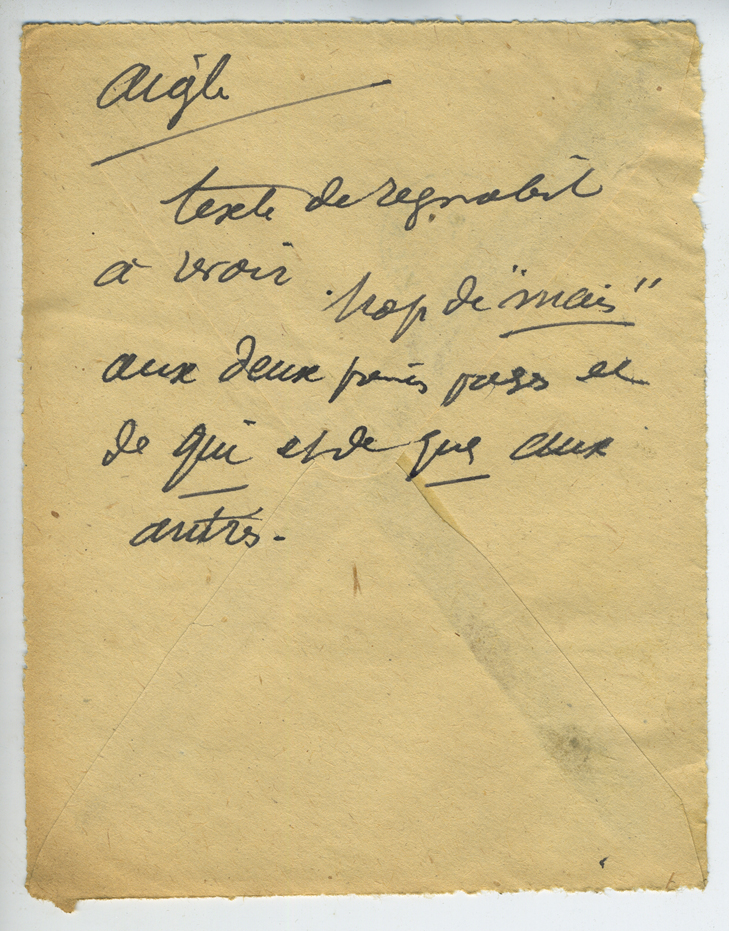 Aigle
texte de regnabit
à revoir . trop de "mais"
aux deux pages et
de qui et de que aux
autres.
6